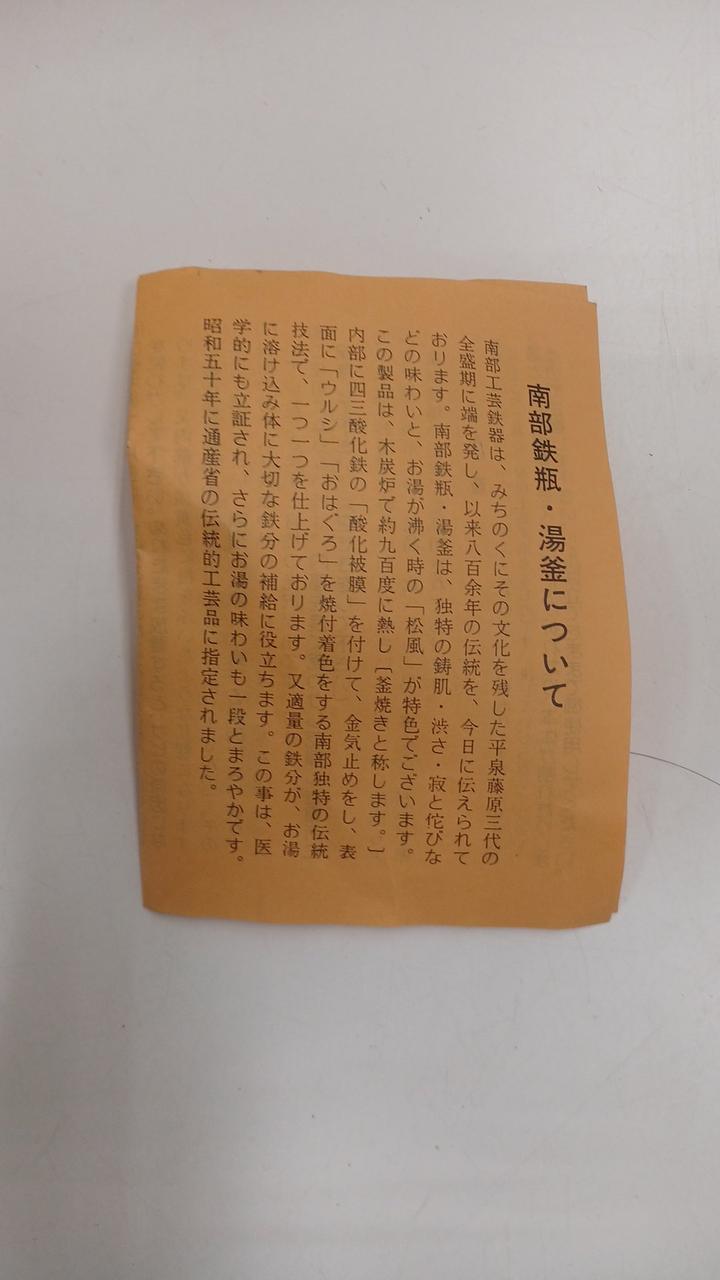 南部鉄瓶・湯釜について
南部工芸鉄器は、みちのくにその文化を残した平泉藤原三代の
全盛期に端を発し、以来八百余年の伝統を、今日に伝えられて
おります。南部鉄瓶・湯釜は、独特の鋳肌・渋さ・寂と侘びな
どの味わいと、お湯が沸く時の「松風」が特色でございます。
この製品は、木炭炉で約九百度に熱し〔釜焼きと称します。〕
内部に四三酸化鉄の「酸化被膜」を付けて、金気止めをし、表
面に「ウルシ」「おはぐろ」を焼付着色をする南部独特の伝統
技法で、一つ一つを仕上げております。又適量の鉄分が、お湯
に溶け込み体に大切な鉄分の補給に役立ちます。この事は、医
学的にも立証され、さらにお湯の味わいも一段とまろやかです。
昭和五十年に通産省の伝統的工芸品に指定されました。